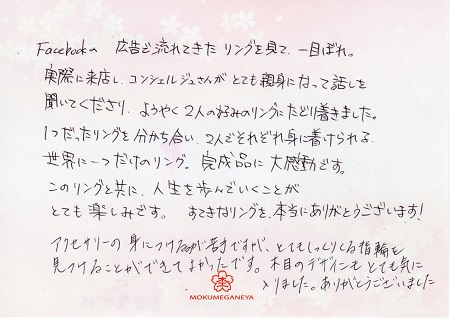 Facebookの 広告で流れてきた リングを見て、一目ぼれ。
実際に来店し、コンシェルジュさんが とても親身になって 話しを
聞いてくださり、ようやく 2人の好みのリングに たどり着きました。
1つだったリングを 分かち合い、2人で それぞれ身に着けられる
世界に一つだけのリング。完成品に 大感動です。
このリングと共に、人生を 歩んでいくことが
とても 楽しみです。 すてきなリングを、本当に ありがとうございます!
アクセサリーの 身につけるのが苦手ですが、とてもしっくりくる指輪を
見つけることができて よかったです。木目のデザインも とても気に
入りました。ありがとうございました
MOKUMEGANEYA